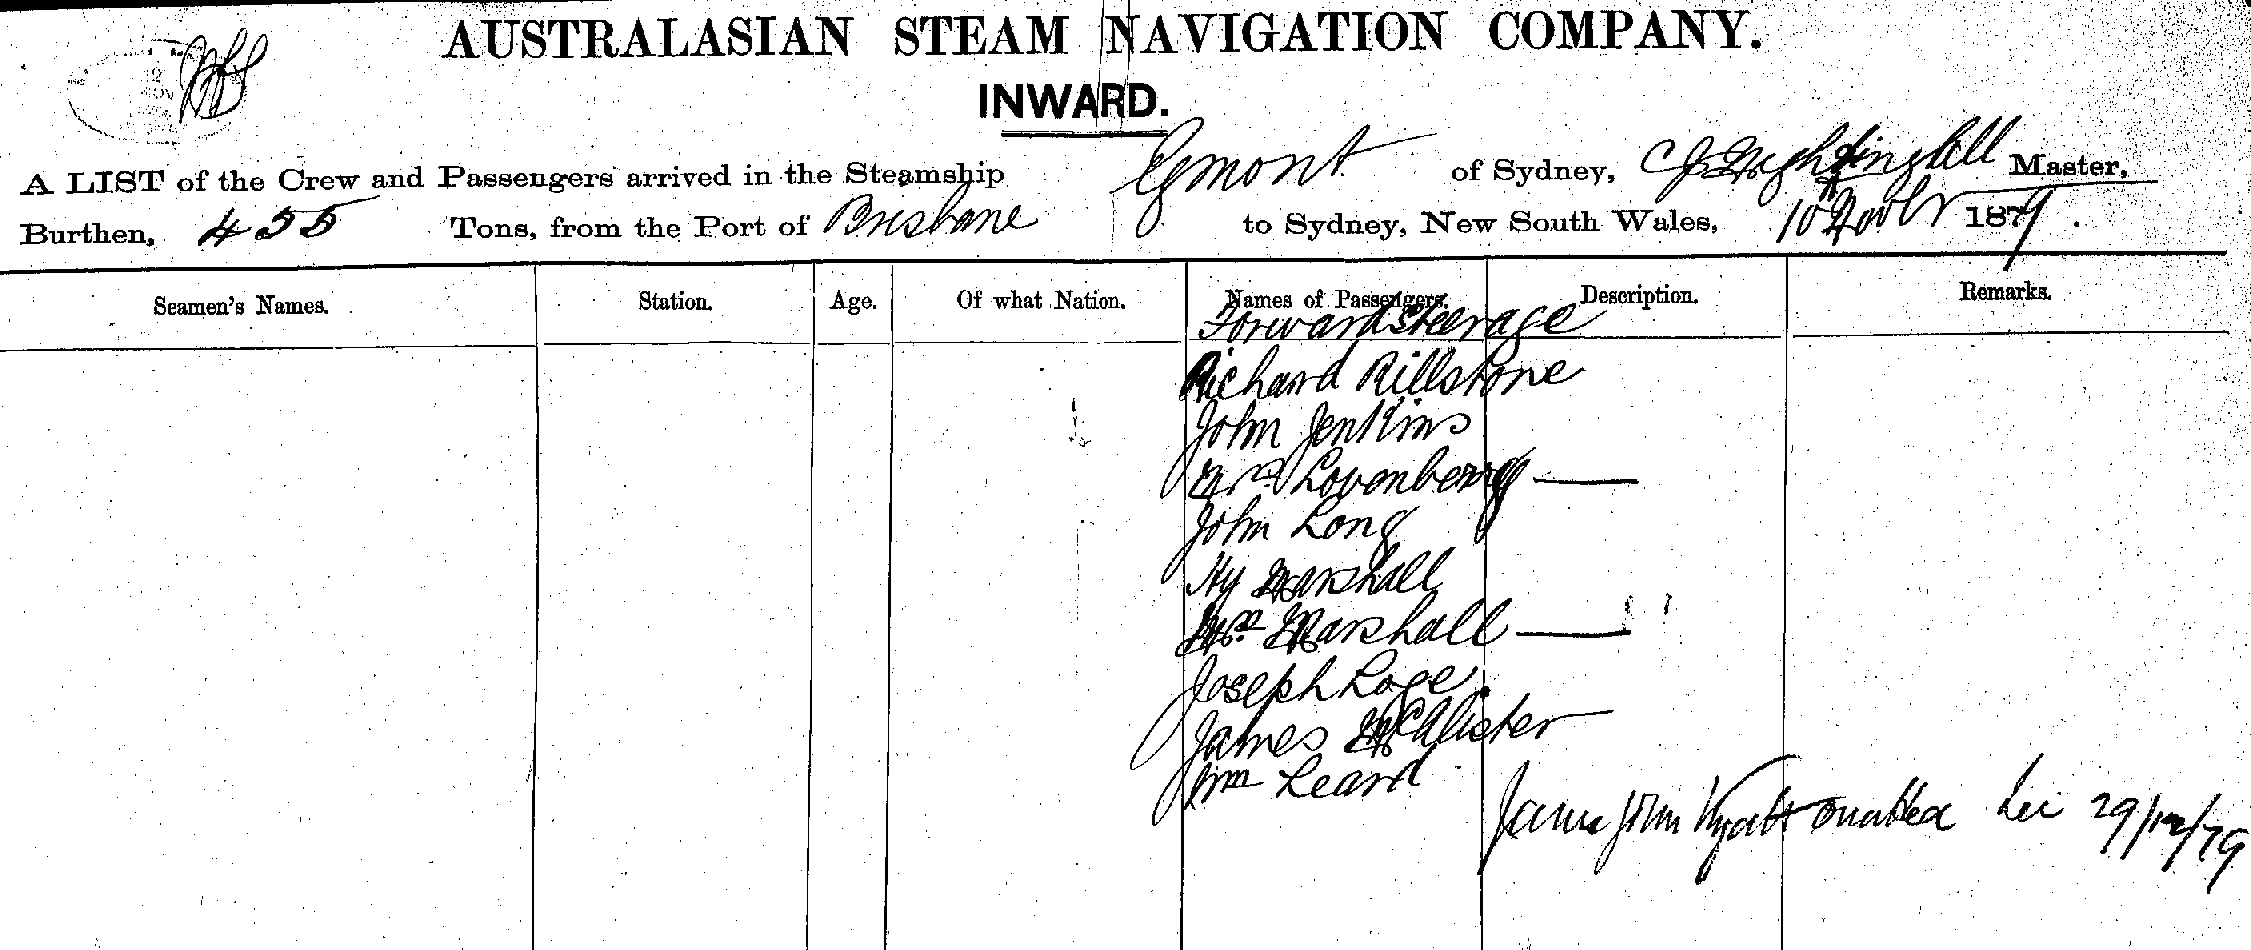 AUSTRALASIAN STEAM NAVIGATION COMPANY.
INWARD.
A LIST of the Crew and Passengers arrived in the Steamship Egmont of Sydney, C J Nightingall Master,
Burthen, 455 Tons, from the Port of Brisbane to Sydney, New South Wales, 10 Novbr 1879.
Seamen's Names. Station. Age. Of what Nation. Names of Passengers. Description. Remarks.
Forward Steerage
Richard Rillstone
John Jenkins
Mrs Lovenberg
John Long
Hy Marshall
Mrs Marshall
Joseph Loge
James McAlister
Wm Leard
James John Wyatt omitted 29/12/79